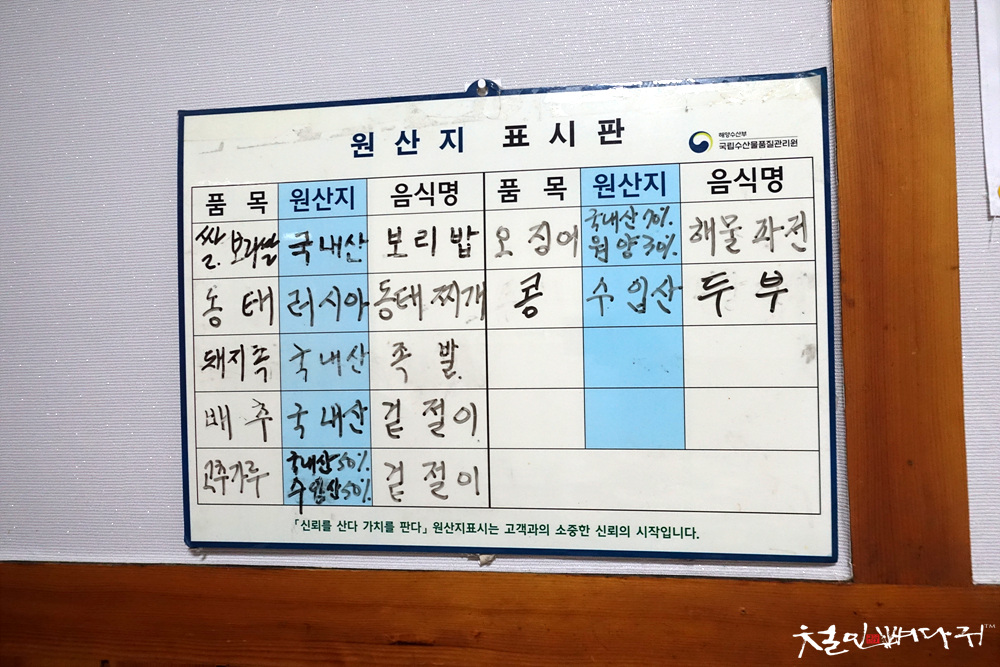 원산지 표시판
해양수산부
국립수산물품질관리원
품목 원산지 음식명 품목 원산지 음식명
쌀. 보리쌀 국내산 보리밥 오징어 국내산 70% 원양 30% 해물파전
동태 러시아 동태찌개 콩 수입산 두부
돼지족 국내산 족발
배추 국내산 겉절이
고추가루 국내산 50% 수입산 50% 겉절이
「신뢰를 산다 가치를 판다」 원산지표시는 고객과의 소중한 신뢰의 시작입니다.
철민뼈다귀™